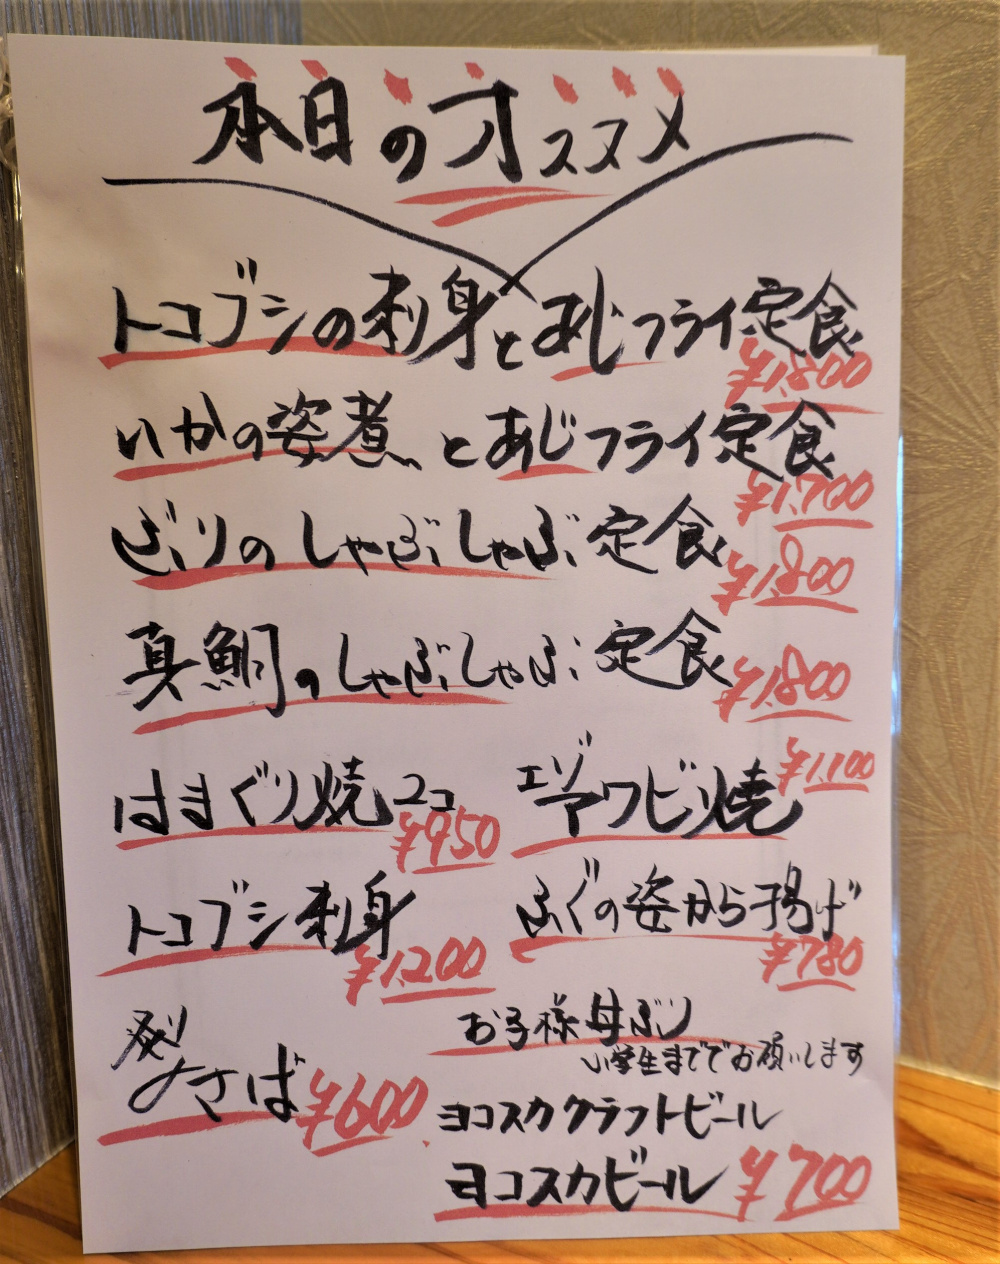 本日のオススメ
トコブシの刺身とあじフライ定食
¥1,800
いかの姿煮とあじフライ定食
¥1,700
ぶりのしゃぶしゃぶ定食
¥1,800
真鯛のしゃぶしゃぶ定食
¥1,800
はまぐり焼 2コ
¥950
エゾアワビ焼
¥1,100
トコブシ刺身
¥1,200
ふぐの姿から揚げ
¥780
炙り
〆さば
¥600
お子様丼ぶり
小学生まででお願いします
ヨコスカクラフトビール
ヨコスカビール ¥700